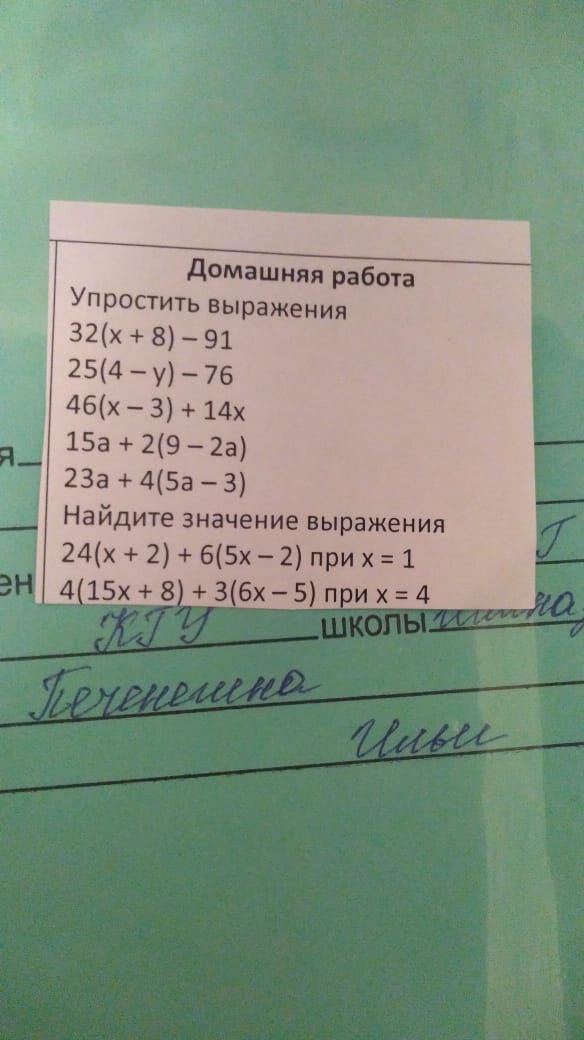 Домашняя работа
Упростить выражения
32(x + 8) – 91
25(4 – y) – 76
46(x – 3) + 14x
15a + 2(9 – 2a)
23a + 4(5a – 3)
Найдите значение выражения
24(x + 2) + 6(5x – 2) при x = 1
4(15x + 8) + 3(6x – 5) при x = 4
КГУ школы
Печенешна
Ильи